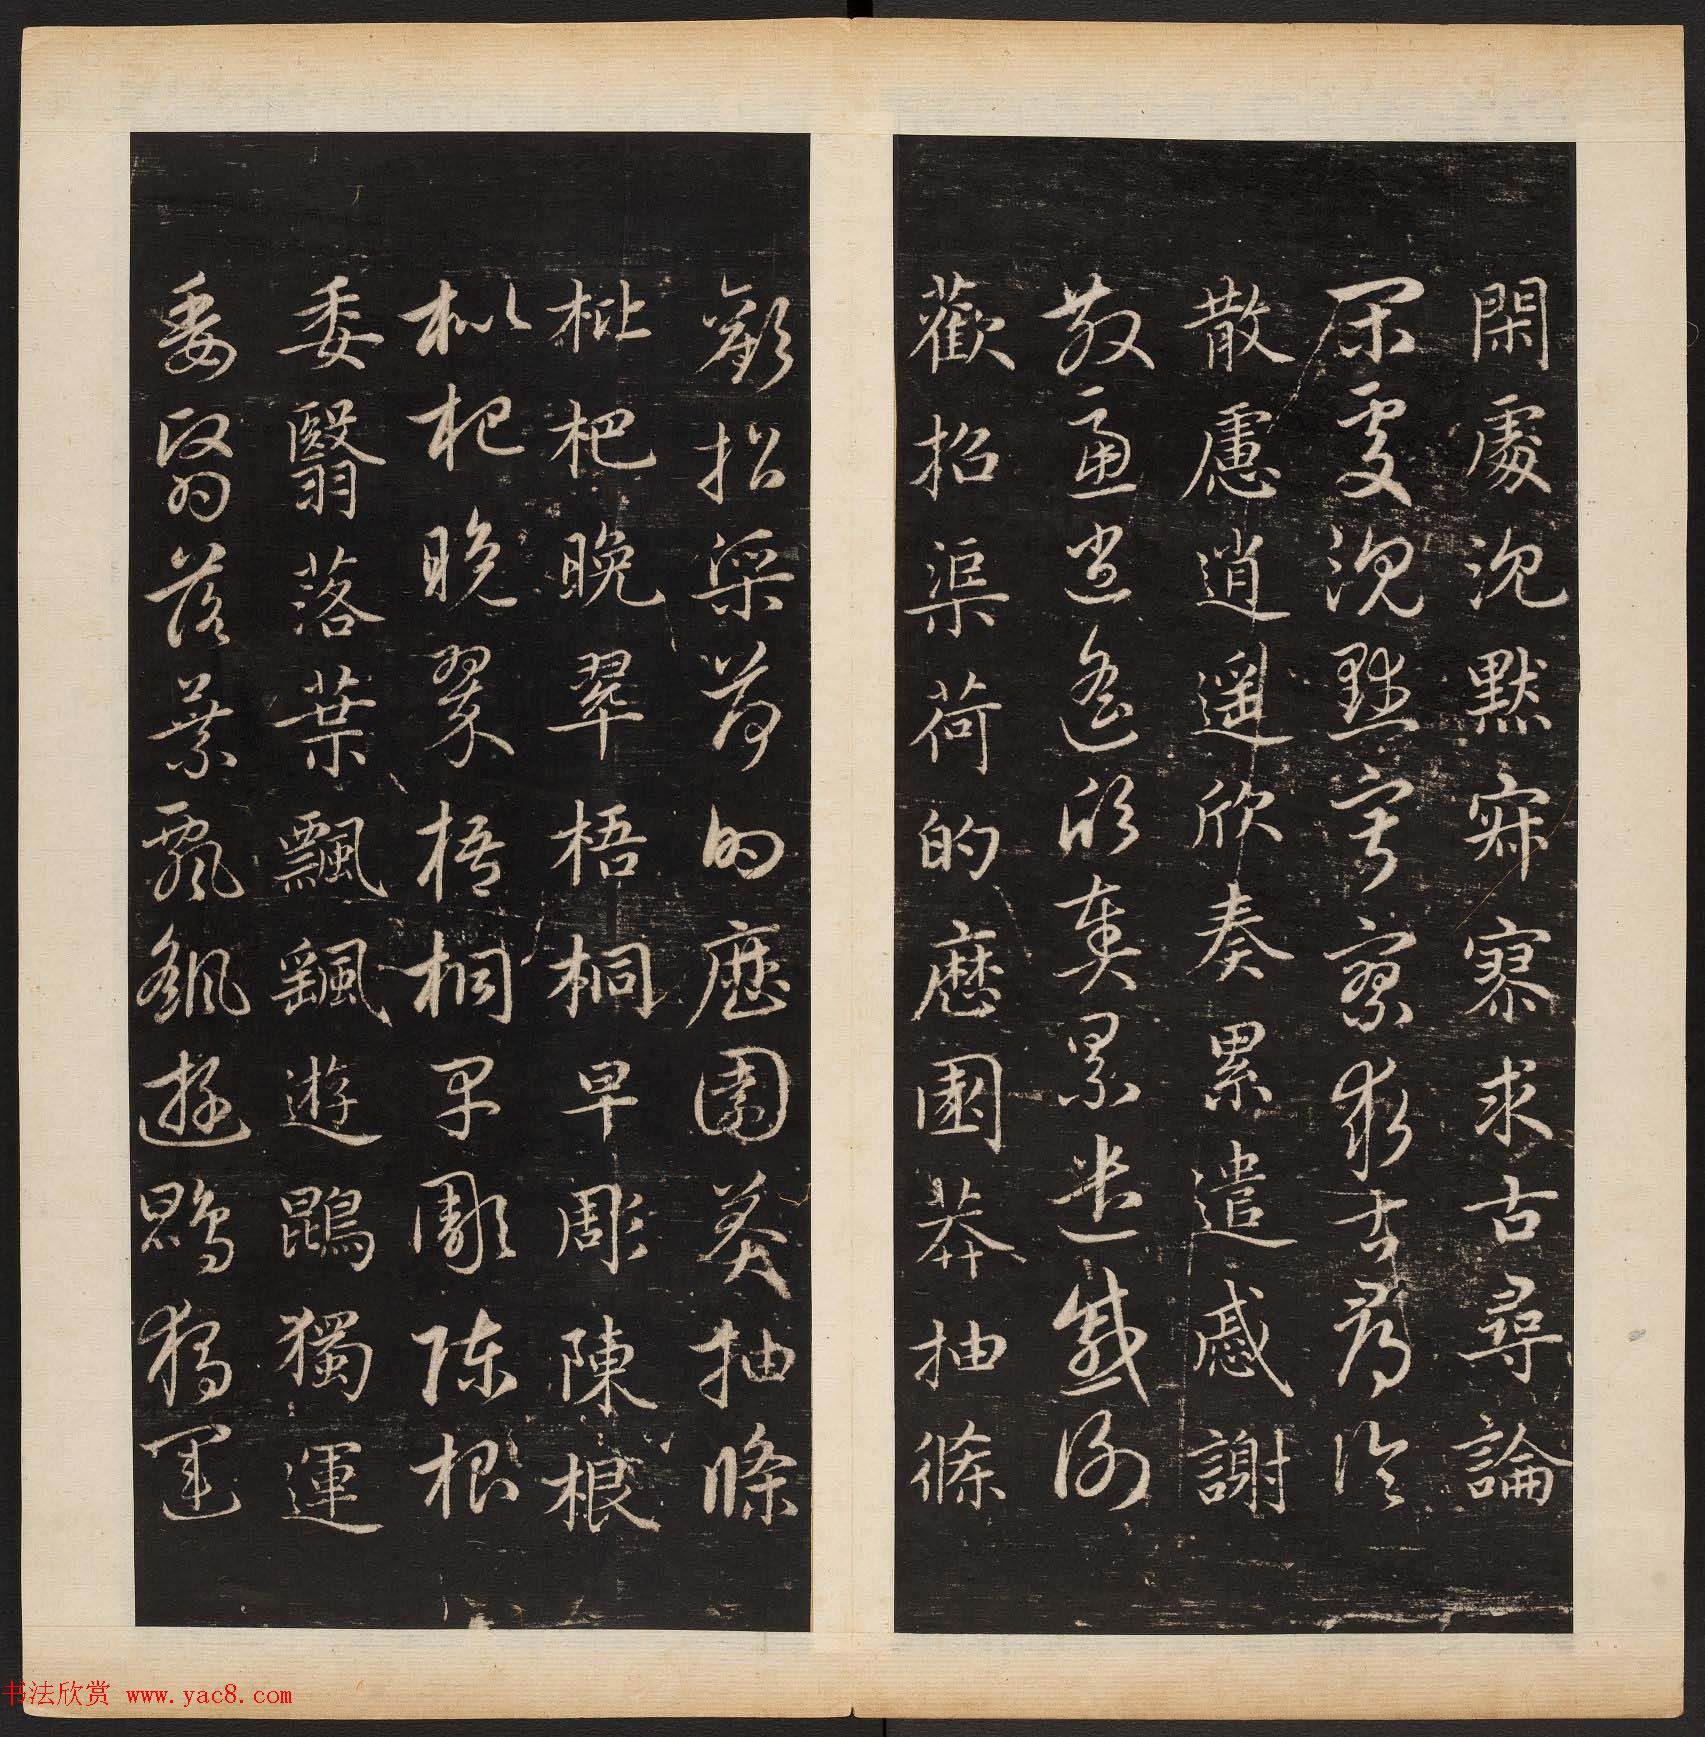 閑處沉默寂寥求古尋論
閑處沉默寂寥求古尋論
散慮逍遙欣奏累遣慼謝
散慮逍遙欣奏累遣慼謝
歡招渠荷的歷園莽抽條
歡招渠荷的歷園莽抽條
枇杷晚翠梧桐早彫陳根
枇杷晚翠梧桐早彫陳根
委翳落葉飄颻遊鵾獨運
委翳落葉飄颻遊鵾獨運
书法欣赏 www.yac8.com